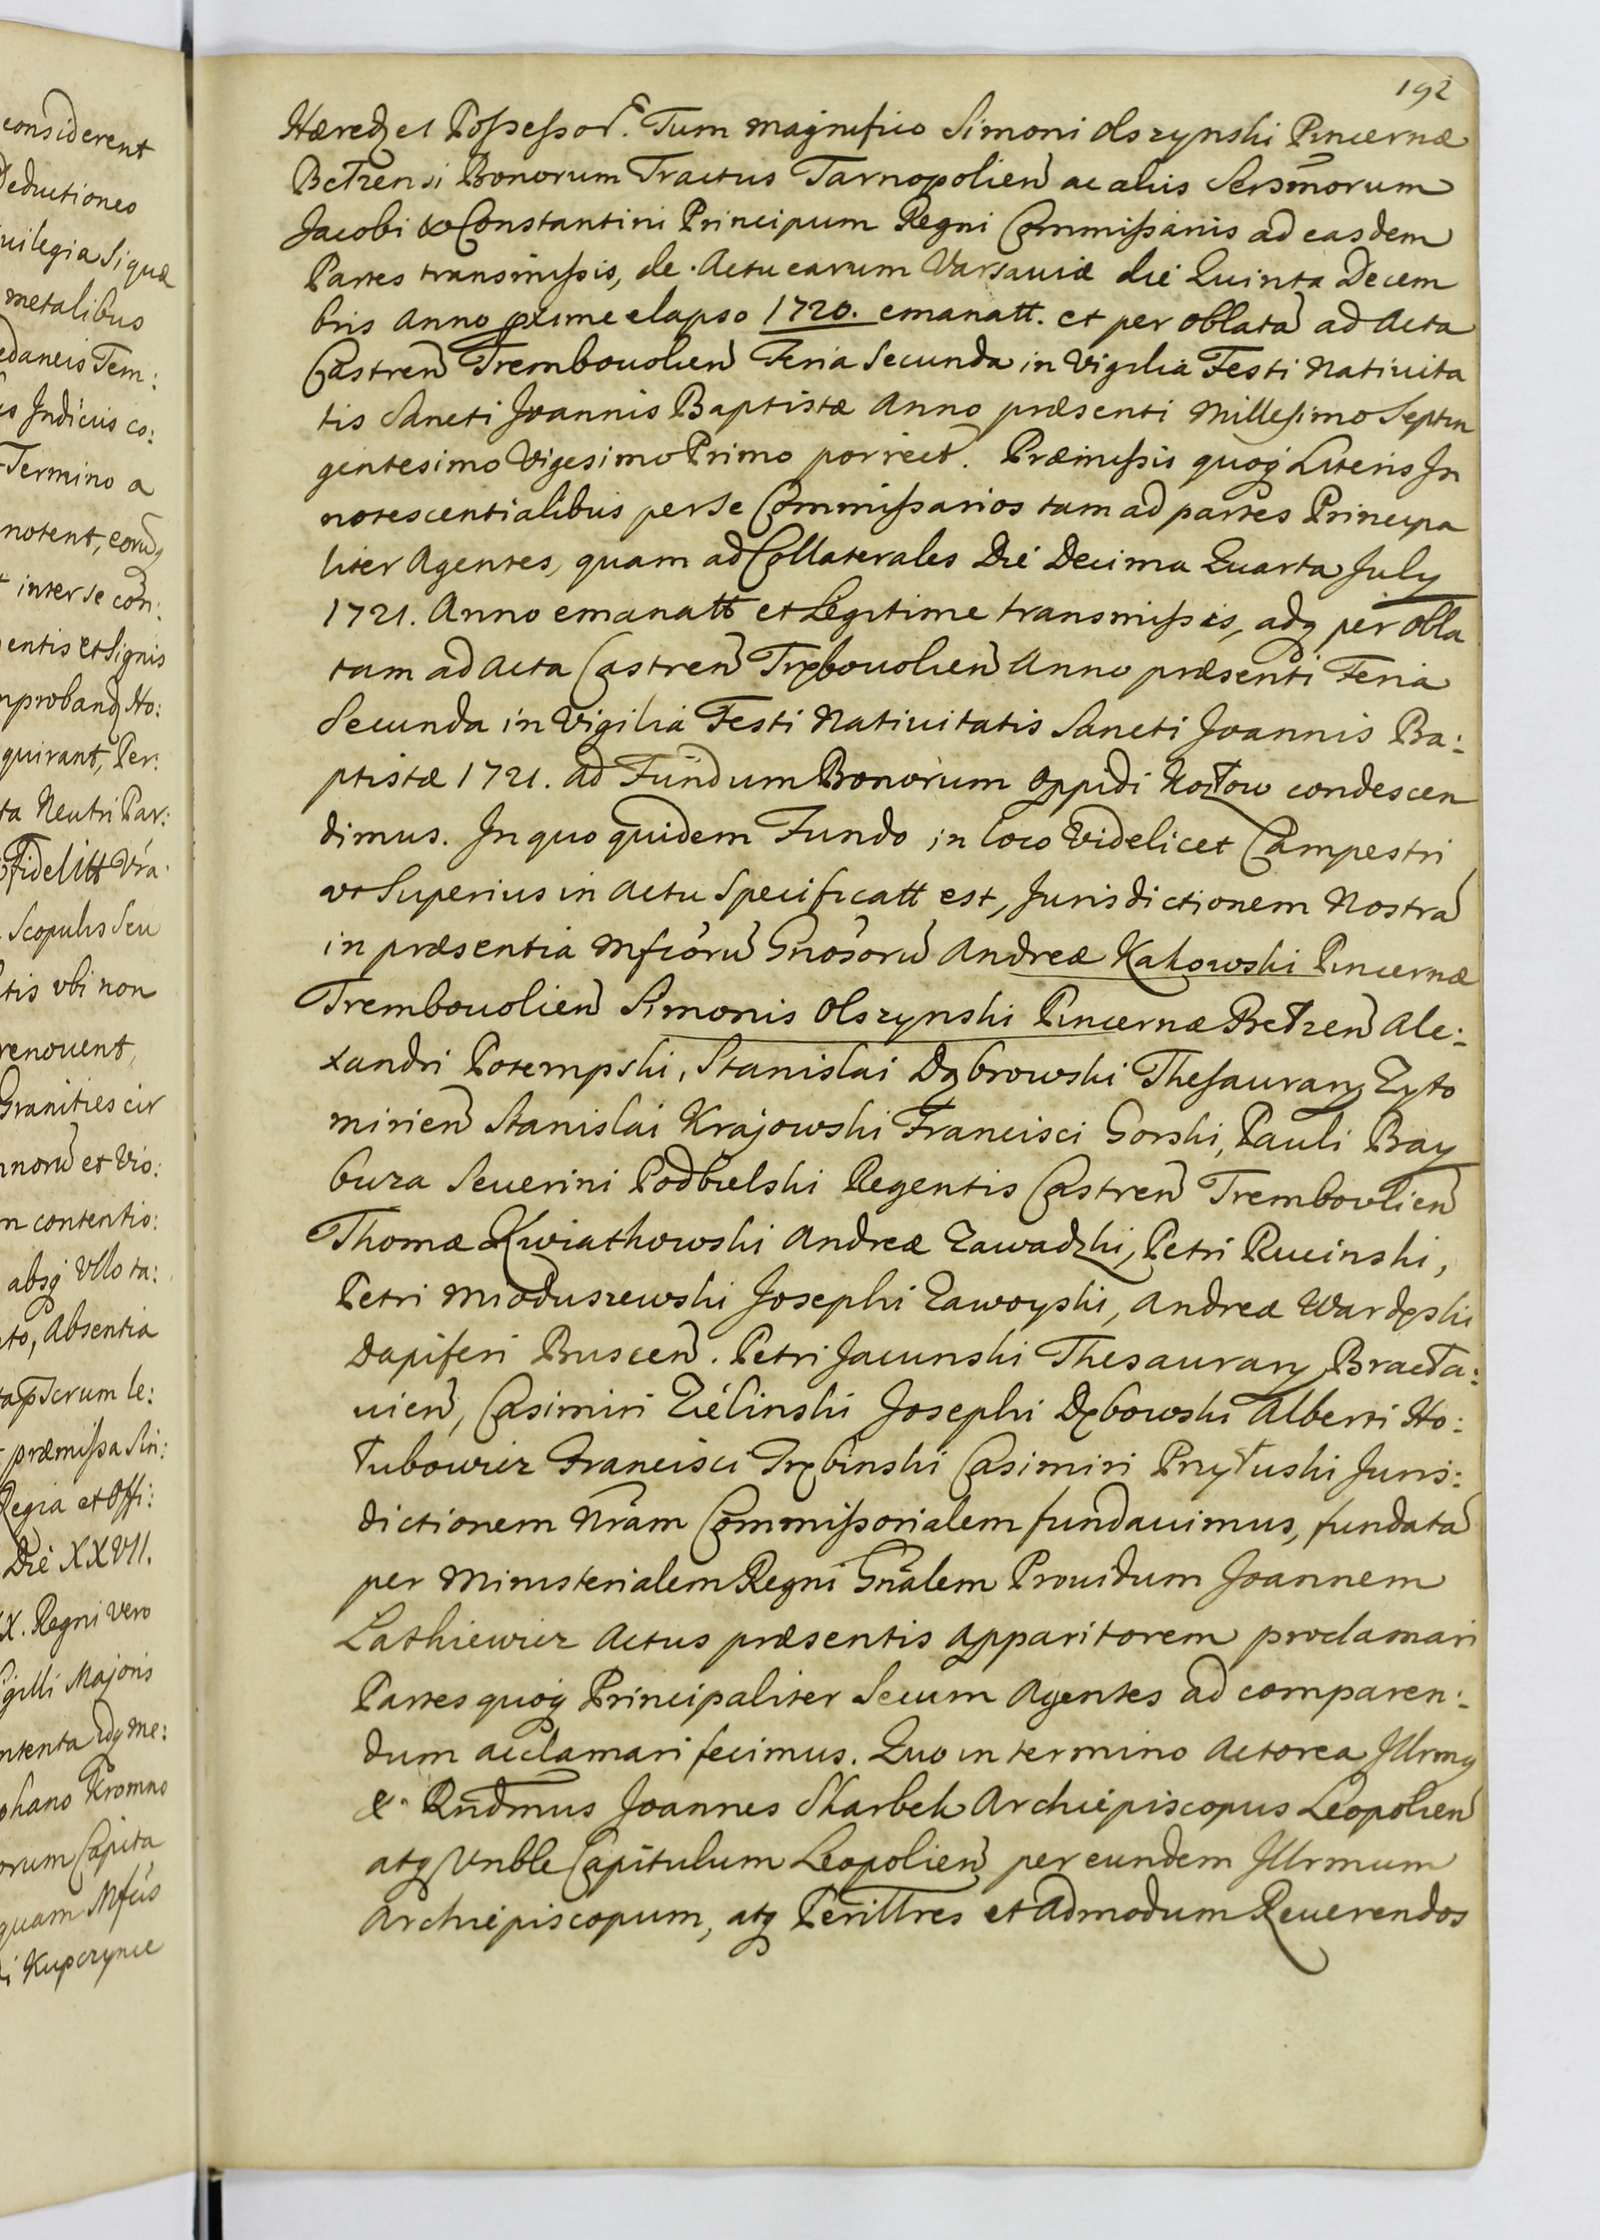 considerent
Deductiones
uilegia Siquæ
metalibus
edaneis Tem:
s Indicus co:
Termino a
notent, eorūq
inter se con:
entis et Signis
probandq Ho:
quirant, Per:
ta Neutri Par:
Fidelitt Vra
Scopulis Seu
tis vbi non
renouent,
Granities cir
norū et Vio:
n contentio:
absq Vllo ta:
to, Absentia
le:
præmissa Sin:
Regia et Offi:
Die XXVII.
X. Regni vero
gilli Majoris
ntenta adq me:
phano Kromno
orum Capita
quam Mfcus
Kupczynce
192
Hæredq et Possessor. Tum magnifico Simoni Olszynski Pincernæ
Bełzensi Bonorum Tractus Tarnopolien ac aliis Sersmorum
Jacobi & Constantini Principum Regni Commissariis ad easdem
Partes transmissis, de Actu earum Varsauiæ die Quinta Decem
bris Anno pxime elapso 1720. emanatt. et per oblatā ad Acta
Castren Trembouolien Feria Secunda in Vigilia Festi Natiuita
tis Sancti Joannis Baptistæ Anno præsenti Millesimo Septin
gentesimo Vigesimo Primo porrect. Præmissis quoq Literis In
notescentialibus per Se Commissarios tam ad partes Principa
liter Agentes, quam ad Collaterales Die Decima Quarta July
1721. Anno emanatt et Legitime transmissis, adq per obla
tam ad Acta Castren Trębouolien Anno præsenti Feria
Secunda in Vigilia Festi Natiuitatis Sancti Joannis Ba:
ptistæ 1721. ad Fundum Bonorum Oppidi Kozłow condescen
dimus. In quo quidem Fundo in loco Videlicet Campestri
vt Superius in Actu Specificatt est, Jurisdictionem Nostrā
in præsentia Mfcorū Gnosorū Andreæ Kakowski Pincernæ
Trembouolien Simonis Olszynski Pincernæ Bełzen Ale:
xandri Potempski, Stanislai Dąbrowski Thesaurary Zyto
mirien Stanislai Krajowski Francisci Gorski, Pauli Bay
buza Seuerini Podbielski Regentis Castren Trembovlien
Thomæ Kwiatkowski Andreæ Zawadzki, Petri Rucinski,
Petri Mioduszewski Josephi Zawoyski, Andreæ Wardęski
Dapiferi Buscen. Petri Jacunski Thesaurary Bracła:
uien, Casimiri Zielinski Josephi Dębowski Alberti Ho:
łubowicz Francisci Trębinski Casimiri Przyłuski Juris:
dictionem Nram Commissorialem fundauimus, fundatā
per Ministerialem Regni Gnalem Prouidum Joannem
Latkiewicz Actus præsentis Apparitorem proclamari
Partes quoq Principaliter Secum Agentes ad comparen:
dum acclamari fecimus. Quo in termino Actorea Illrmq
& Rndmus Joannes Skarbek Archiepiscopus Leopolien
atq Vnble Capitulum Leopolien per eundem Illrmum
Archiepiscopum, atq Perilltres et Admodum Reuerendos